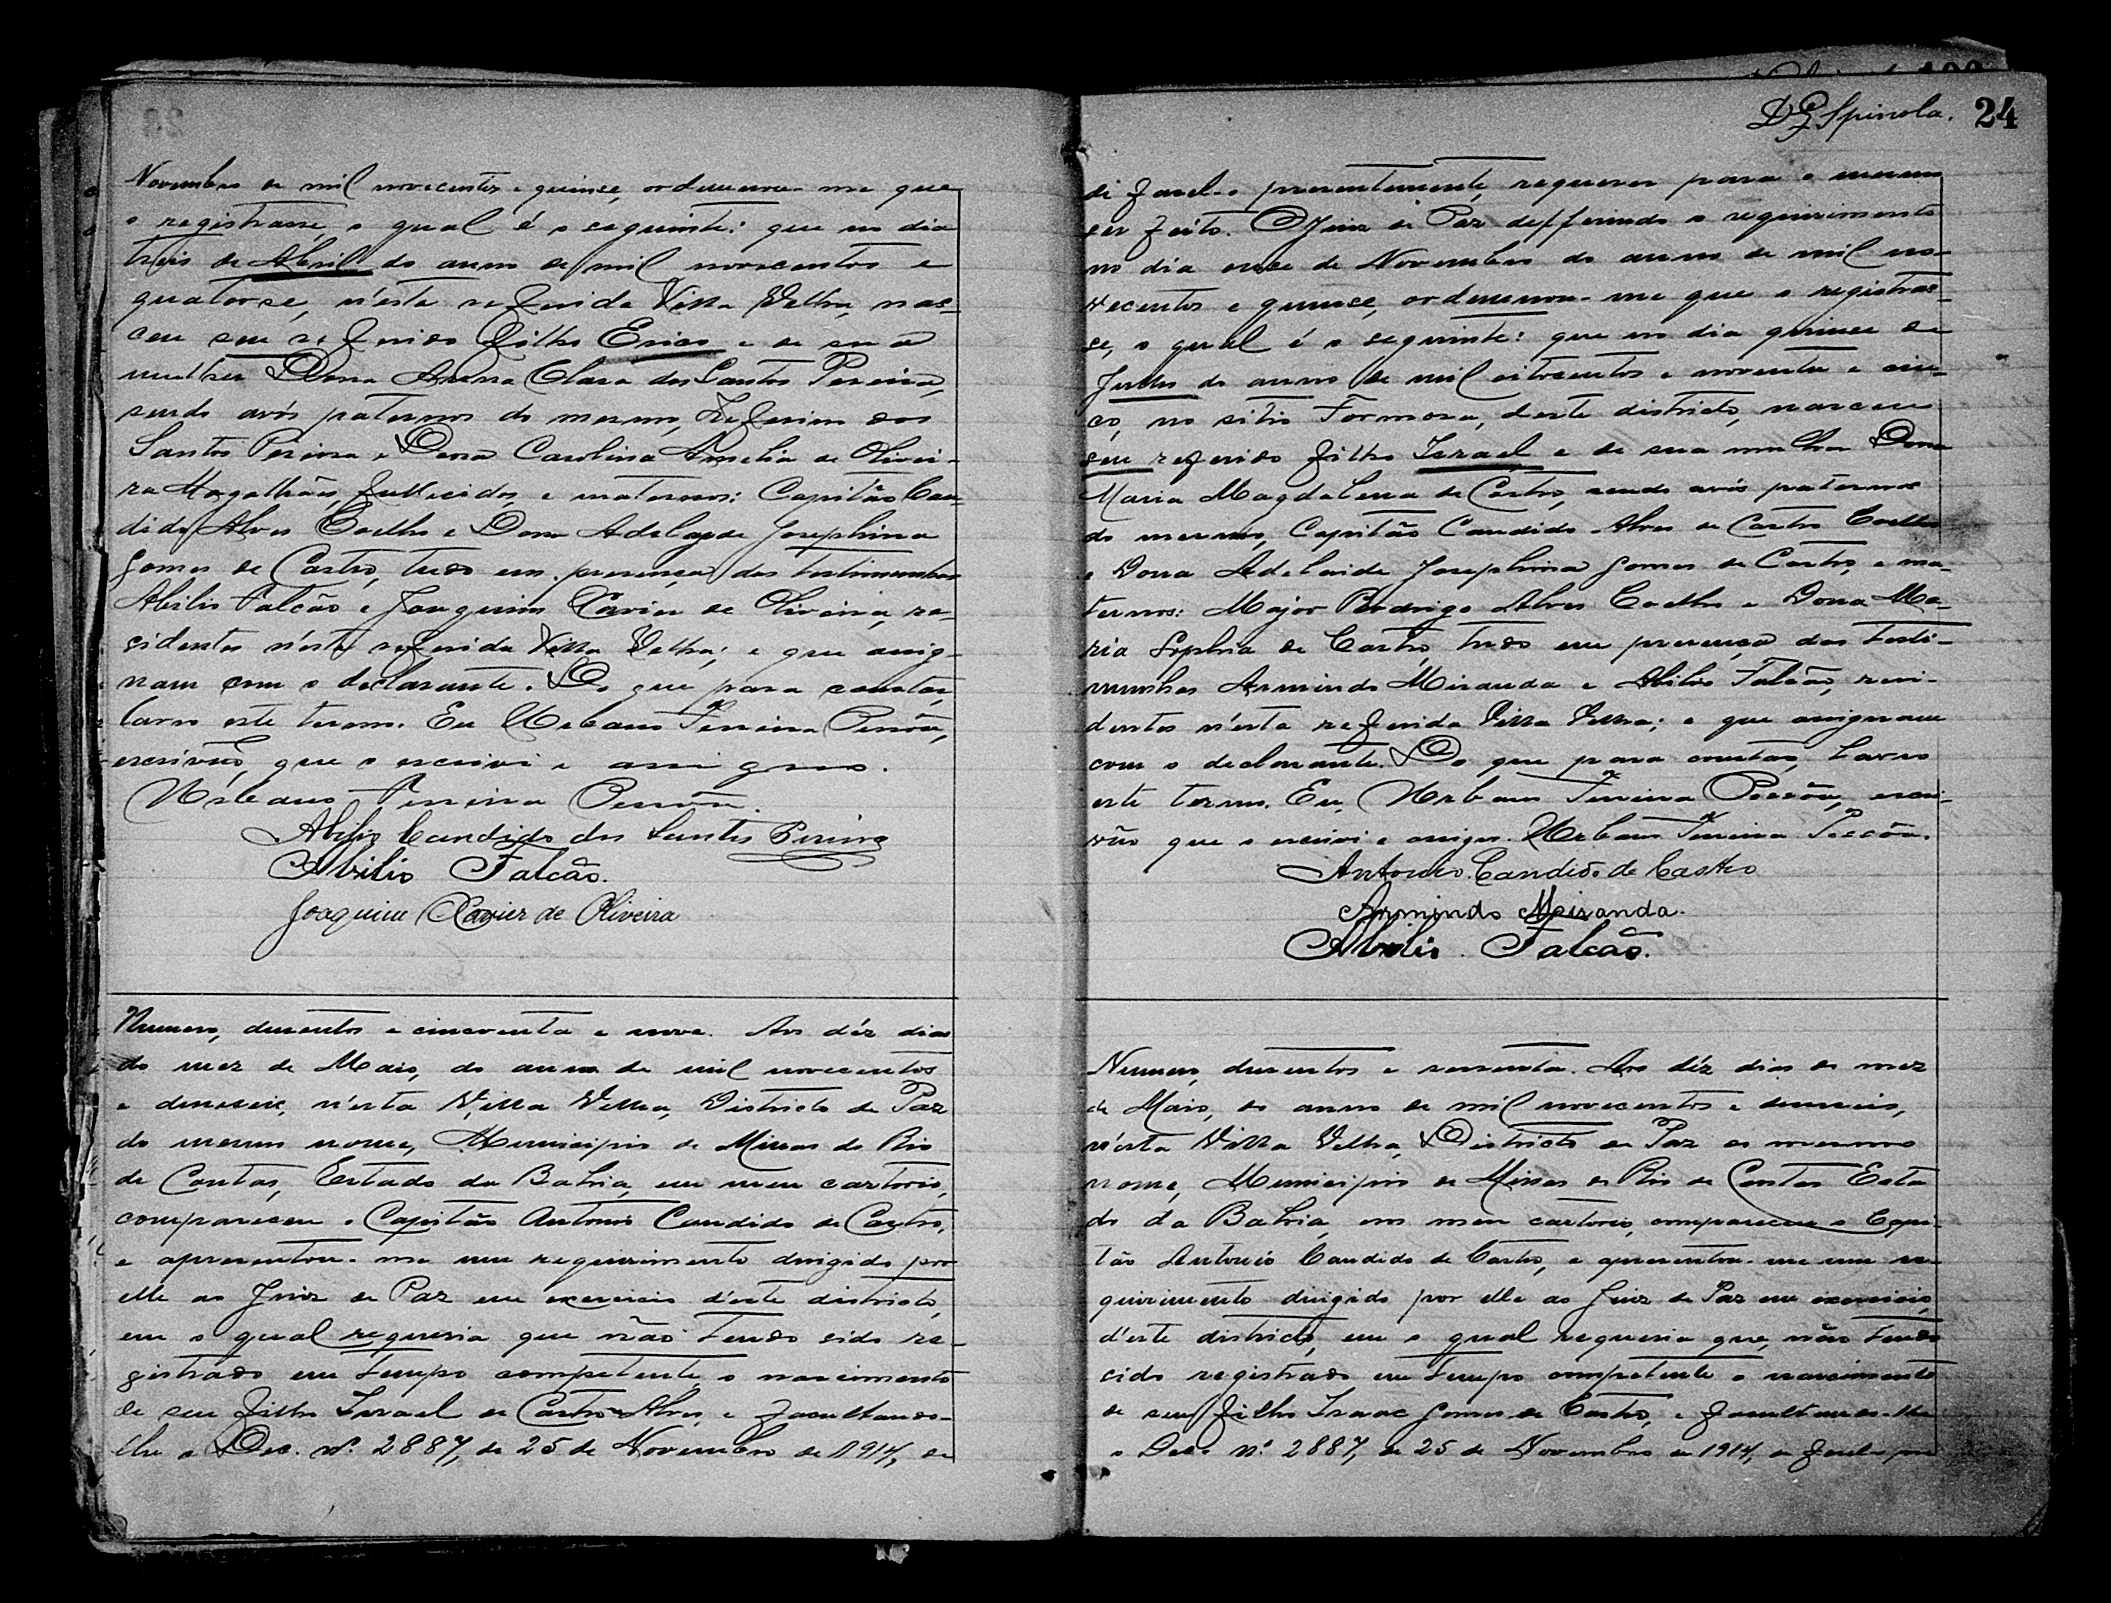 Novembro de mil novecentos e quinse, ordenenou-me que
o registrasse, o qual é o seguinte: que no dia
treis de Abril do anno de mil novecentos e
quatorse, n'esta referida Villa Velha, nas-
ceu seu referido filho Erico e de sua
mulher Dona Anna Clara dos Santos Pereira,
sendo avós paternos do mesmo, Zeferino dos
Santos Pereira e Dona Carolina Amelia de Olivei-
ra Magalhães, fallecidos, e maternos: Capitão Can-
dido Alves Coelho e Dona Adelayde Josephina
Gomes de Castro, tudo em presença das testimunhas
Abilio Falcão e Joaquim Xavier de Oliveira, re-
sidentes n'esta referida Villa Velha; e que assig-
nam com o declarante. Do que para constar,
lavro este termo. Eu Urbano Pereira Pessôa,
escrivão, que o escrivi e assigno.
Urbano Pereira Pessôa.
Abilio Candido dos Santos Pereira
Abilio Falcão.
Joaquim Xavier de Oliveira
Numero, dusentos e cincoenta e nove. Aos déz dias
do mez de Maio, do anno de mil novecentos
e deseseis, n'esta Villa Velha, Districto de Paz
do mesmo nome, Municipio de Minas do Rio
de Contas, Estado da Bahia, em meu cartorio,
compareceu o Capitão Antonio Candido de Castro,
e apresentou-me um requerimento dirigido por
elle ao Juiz de Paz em exercicio d'este districto,
em o qual requeria que não tendo sido re-
gistrado em tempo competente o nascimento
de seu filho Israel de Castro Alves, e facultando-
lhe o Dec. nº. 2887, de 25 de Novembro de 1914, de
D G Spinola. 24
si fasel-o presentemente, requerer para o mesmo
ser feito. O Juiz de Paz defferindo o requirimento
no dia onse de Novembro do anno de mil no-
vecentos e quinse, ordenenou-me que o registras-
se, o qual é o seguinte: que no dia quinse de
Junho do anno de mil oitocentos e noventa e cin-
co, no sitio Formosa, deste districto, nasceu
seu referido filho Israel e de sua mulher Dona
Maria Magdalena de Castro, sendo avós paternos
do mesmo, Capitão Candido Alves de Castro Coelho
e Dona Adelaide Josephina Gomes de Castro, e ma-
ternos: Major Rodrigo Alves Coelho e Dona Ma-
ria Sophia de Castro, tudo em presença das testi-
munhas Armindo Miranda e Abilio Falcão, resi-
dentes n'esta referida Villa Velha; e que assignam
com o declarante. Do que para constar, lavro
este termo. Eu, Urbano Pereira Pessôa, escri-
vão que o escrivi e assigno. Urbano Pereira Pessôa.
Antonio Candido de Castro
Armindo Miranda.
Abilio Falcão.
Numero, dusentos e sessenta. Aos déz dias do mez
de Maio, do anno de mil novecentos e deseseis,
n'esta Villa Velha, Districto de Paz do mesmo
nome, Municipio de Minas do Rio de Contas Esta
do da Bahia, em meu cartorio, compareceu o Capi-
tão Antonio Candido de Castro, e apresentou-me um re-
quirimento dirigido por elle ao Juiz de Paz em exercicio,
d'este districto, em o qual requeria que, não tendo
sido registrado em tempo competente o nascimento
de seu filho Isaac Gomes de Castro, e facultando-lhe
o Dec. nº. 2887, de 25 de Novembro de 1914, de fasel-o pre